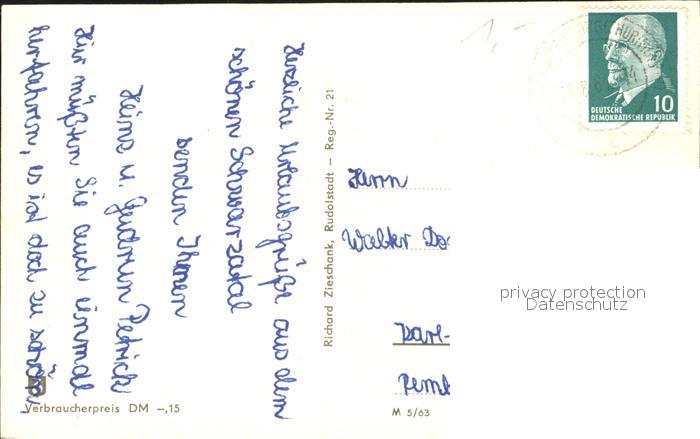 Herzliche Urlaubsgrüße aus dem
schönen Schwarzatal
senden Ihnen
Heinz u. Gudrun Petrick
Hier müßten Sie auch einmal
herfahren, es ist doch zu schön,
Verbraucherpreis DM -,15
Richard Zieschank, Rudolstadt — Reg.-Nr. 21
1,-
DEUTSCHE
DEMOKRATISCHE REPUBLIK
10
Herrn
Walter Do
privacy protection
Datenschutz
Karl-
M 5/63